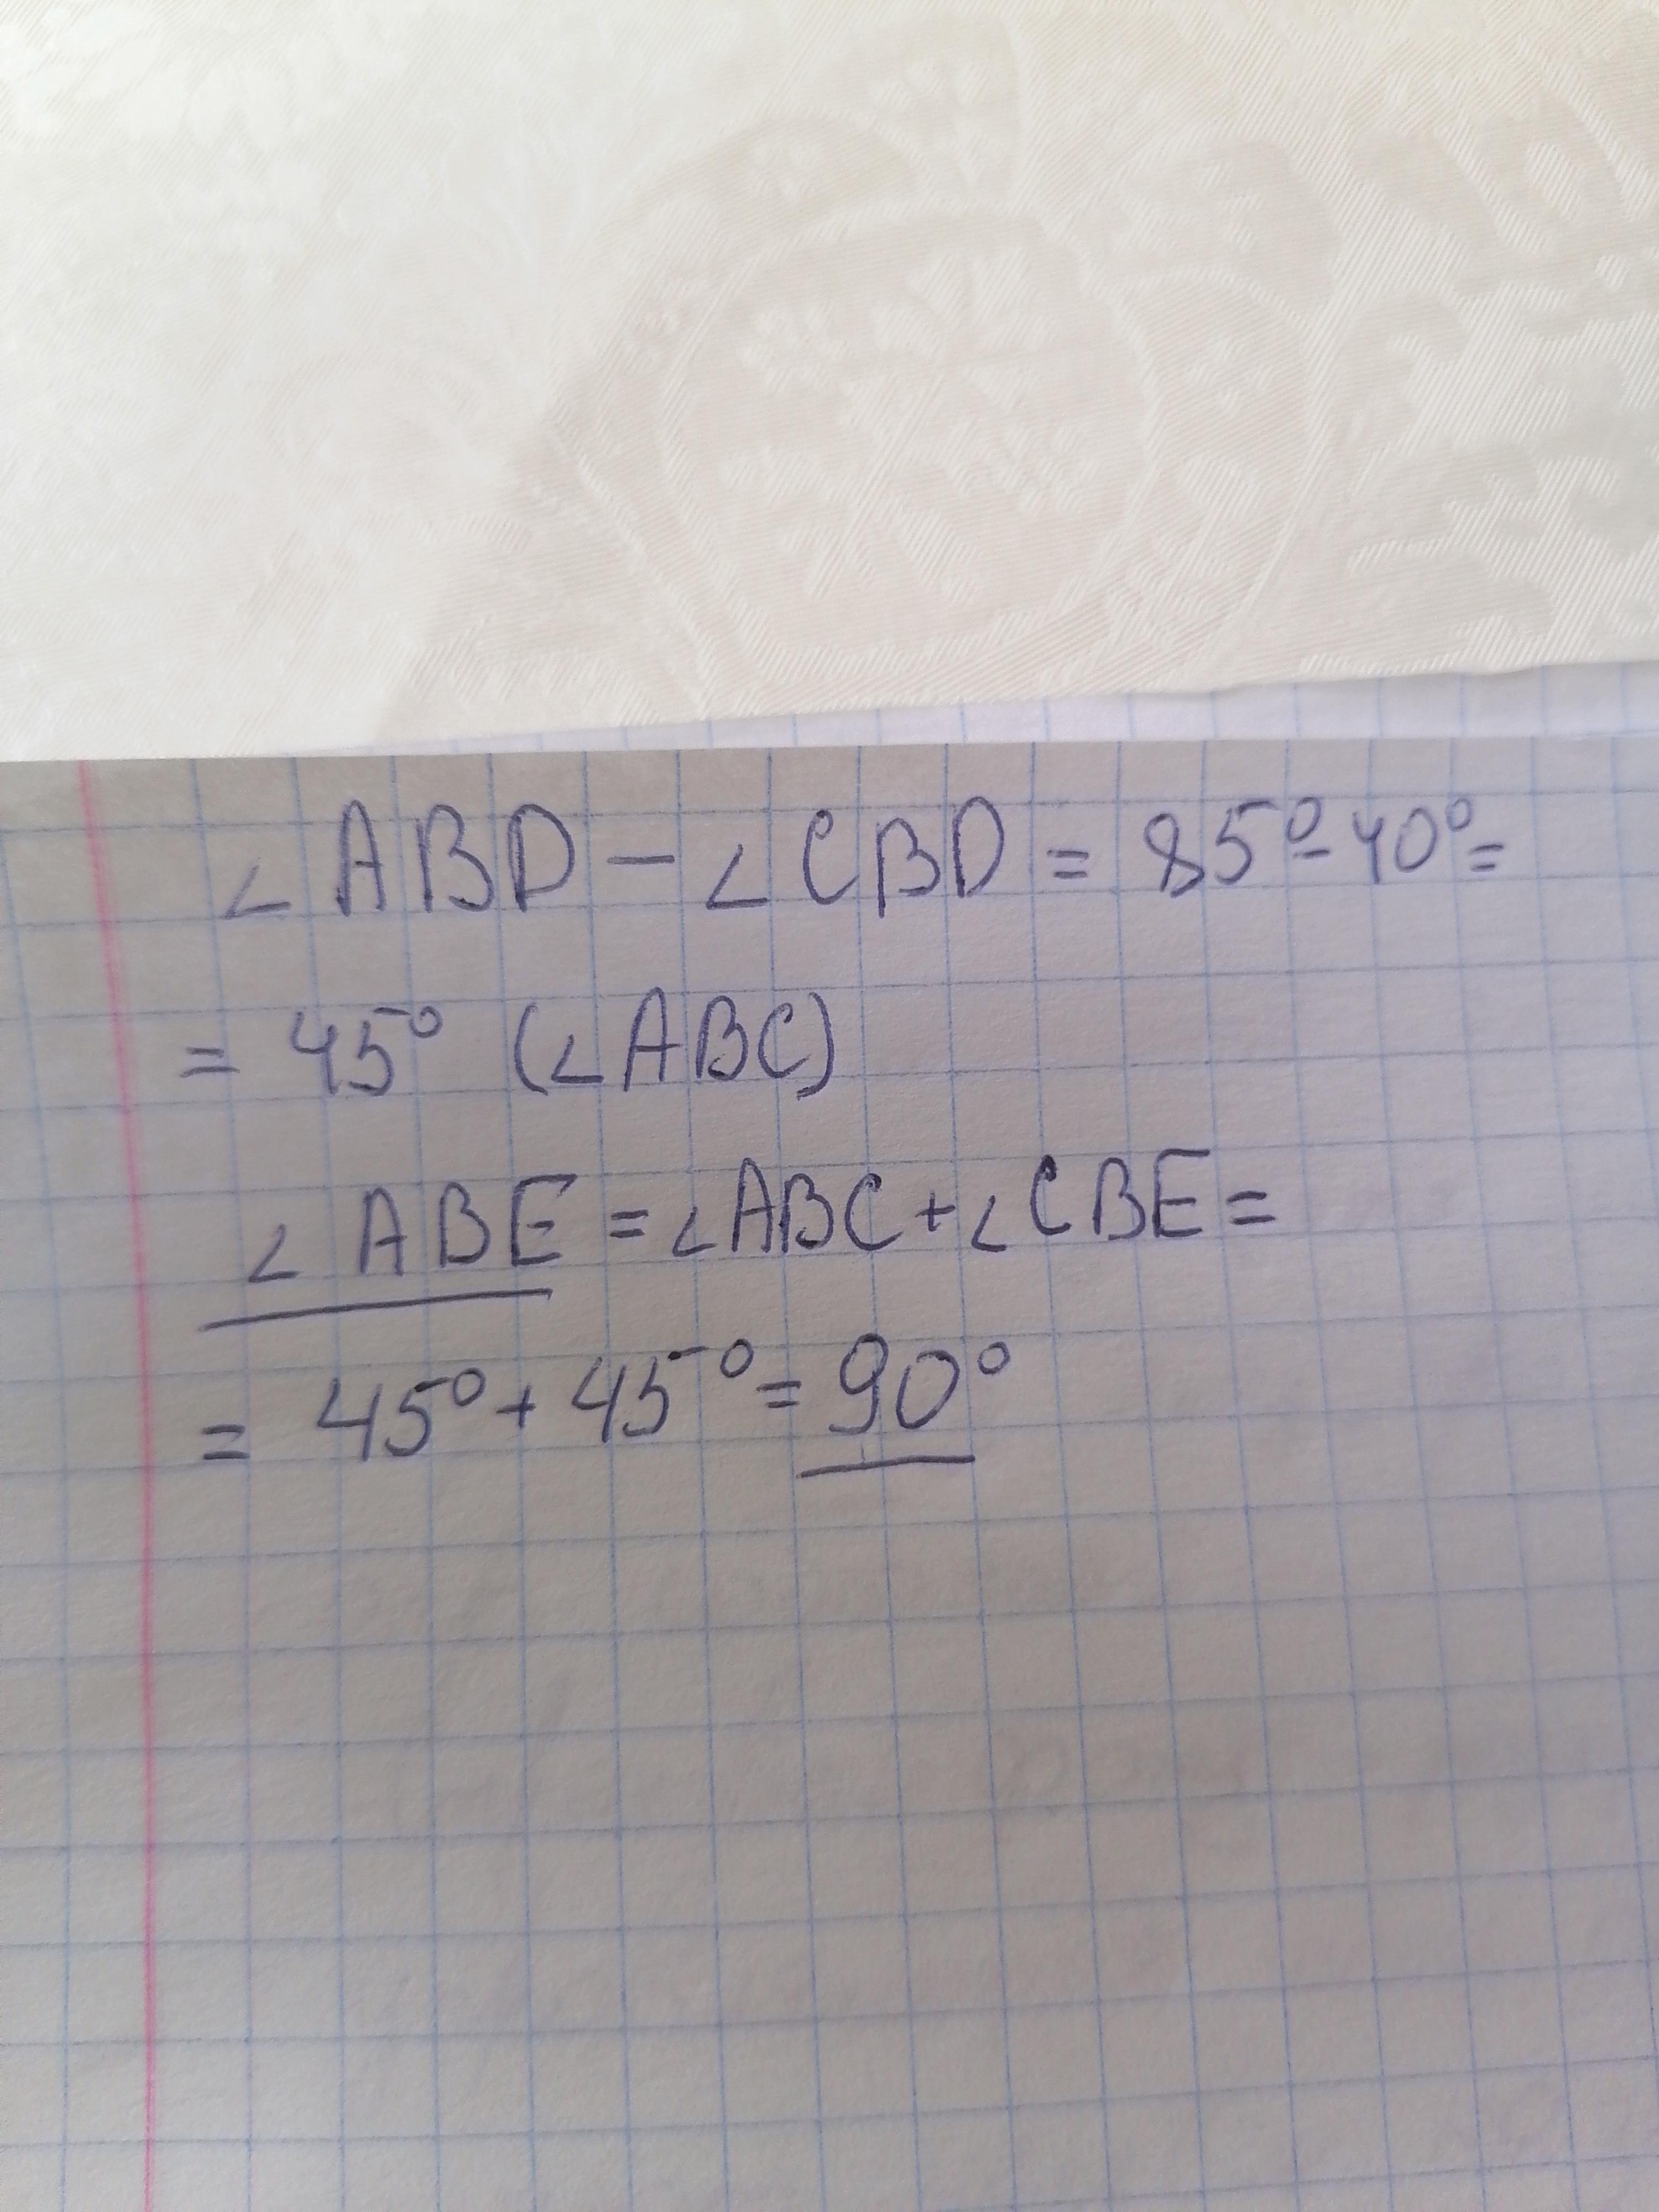 ∠ABD - ∠CBD = 85° - 40° =
= 45° (∠ABC)
∠ABE = ∠ABC + ∠CBE =
= 45° + 45° = 90°